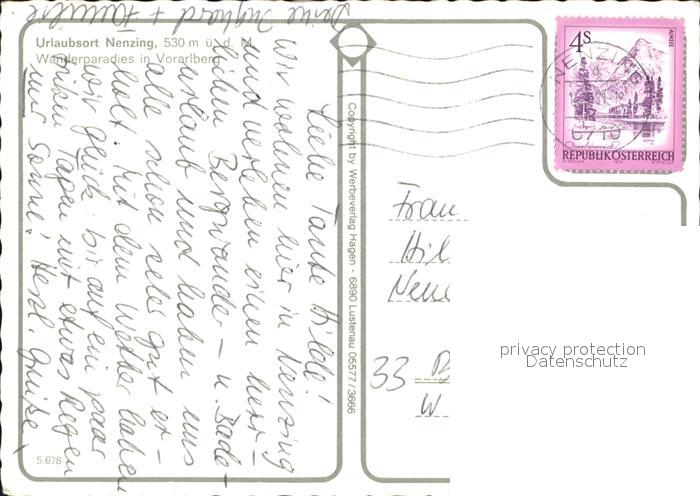 Urlaubsort Nenzing, 530 m ü. d. M.
Wanderparadies in Vorarlberg
Liebe Tante Hilde!
Wir wohnen hier in Nenzing
und verleben einen herr-
lichen Bergwander- u. Bade-
urlaub und haben uns
alle schon sehr gut er-
holt. Mit dem Wetter haben
wir Glück bis auf ein paar
trüben Tagen mit etwas Regen
nur Sonne! Herzl. Grüße,
Deine Ingbord + Familie
5.678
Copyright by Werbeverlag Hagen - 6890 Lustenau 05577/3666
4 S
ALMSEE
REPUBLIK ÖSTERREICH
NENZING
Frau
Hil
Neue
33 B
W
privacy protection
Datenschutz